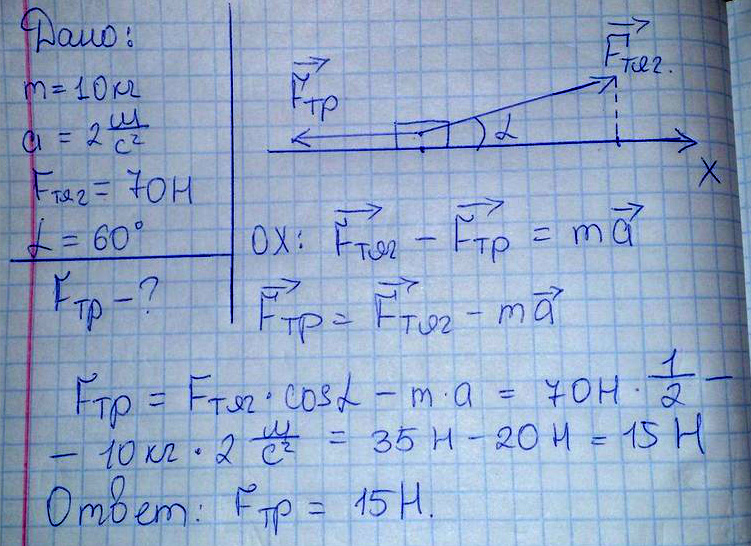 Дано:
m = 10 кг
a = 2 м/с²
Fтяг = 70 Н
α = 60°
Fтр - ?
Fтр
Fтяг.
α
X
OX: Fтяг - Fтр = ma
Fтр = Fтяг - ma
Fтр = Fтяг · cosα - m·a = 70Н · 1/2 -
- 10 кг · 2 м/с² = 35 Н - 20 Н = 15 Н
Ответ: Fтр = 15Н.